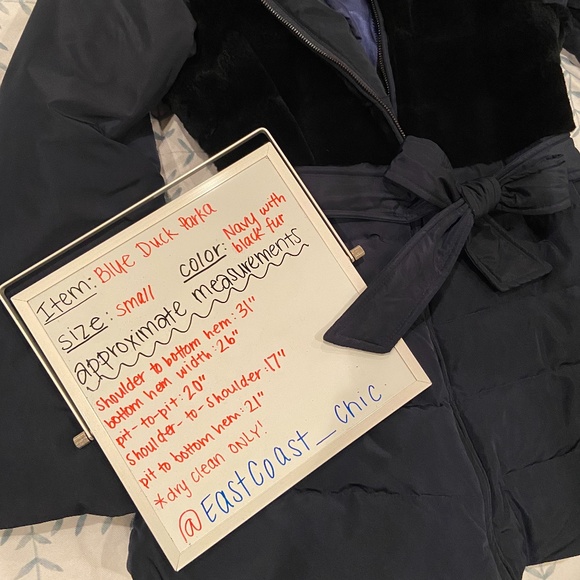 Item: Blue Duck Parka
size: small color: Navy with black fur
approximate measurements
shoulder to bottom hem: 31"
bottom hem width: 26"
pit-to-pit: 20"
shoulder-to-shoulder: 17"
pit to bottom hem: 21"
*dry clean ONLY!
@EastCoast_chic